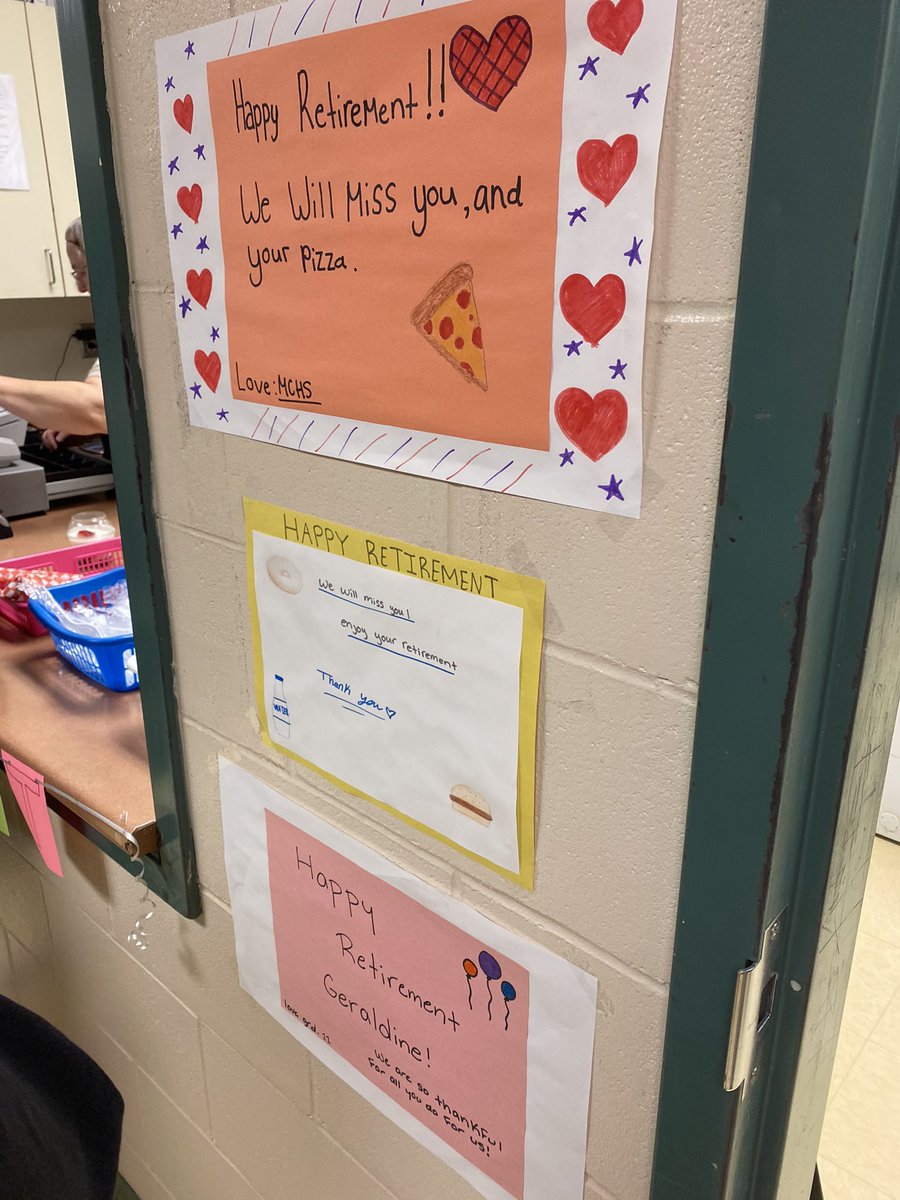 Happy Retirement!!
We Will Miss you, and
your Pizza.
Love: MCHS
HAPPY RETIREMENT
We will miss you!
enjoy your retirement
Thank you
WATER
Happy
Retirement
Geraldine!
love grd. 12
We are so thankful
For all you do For us!